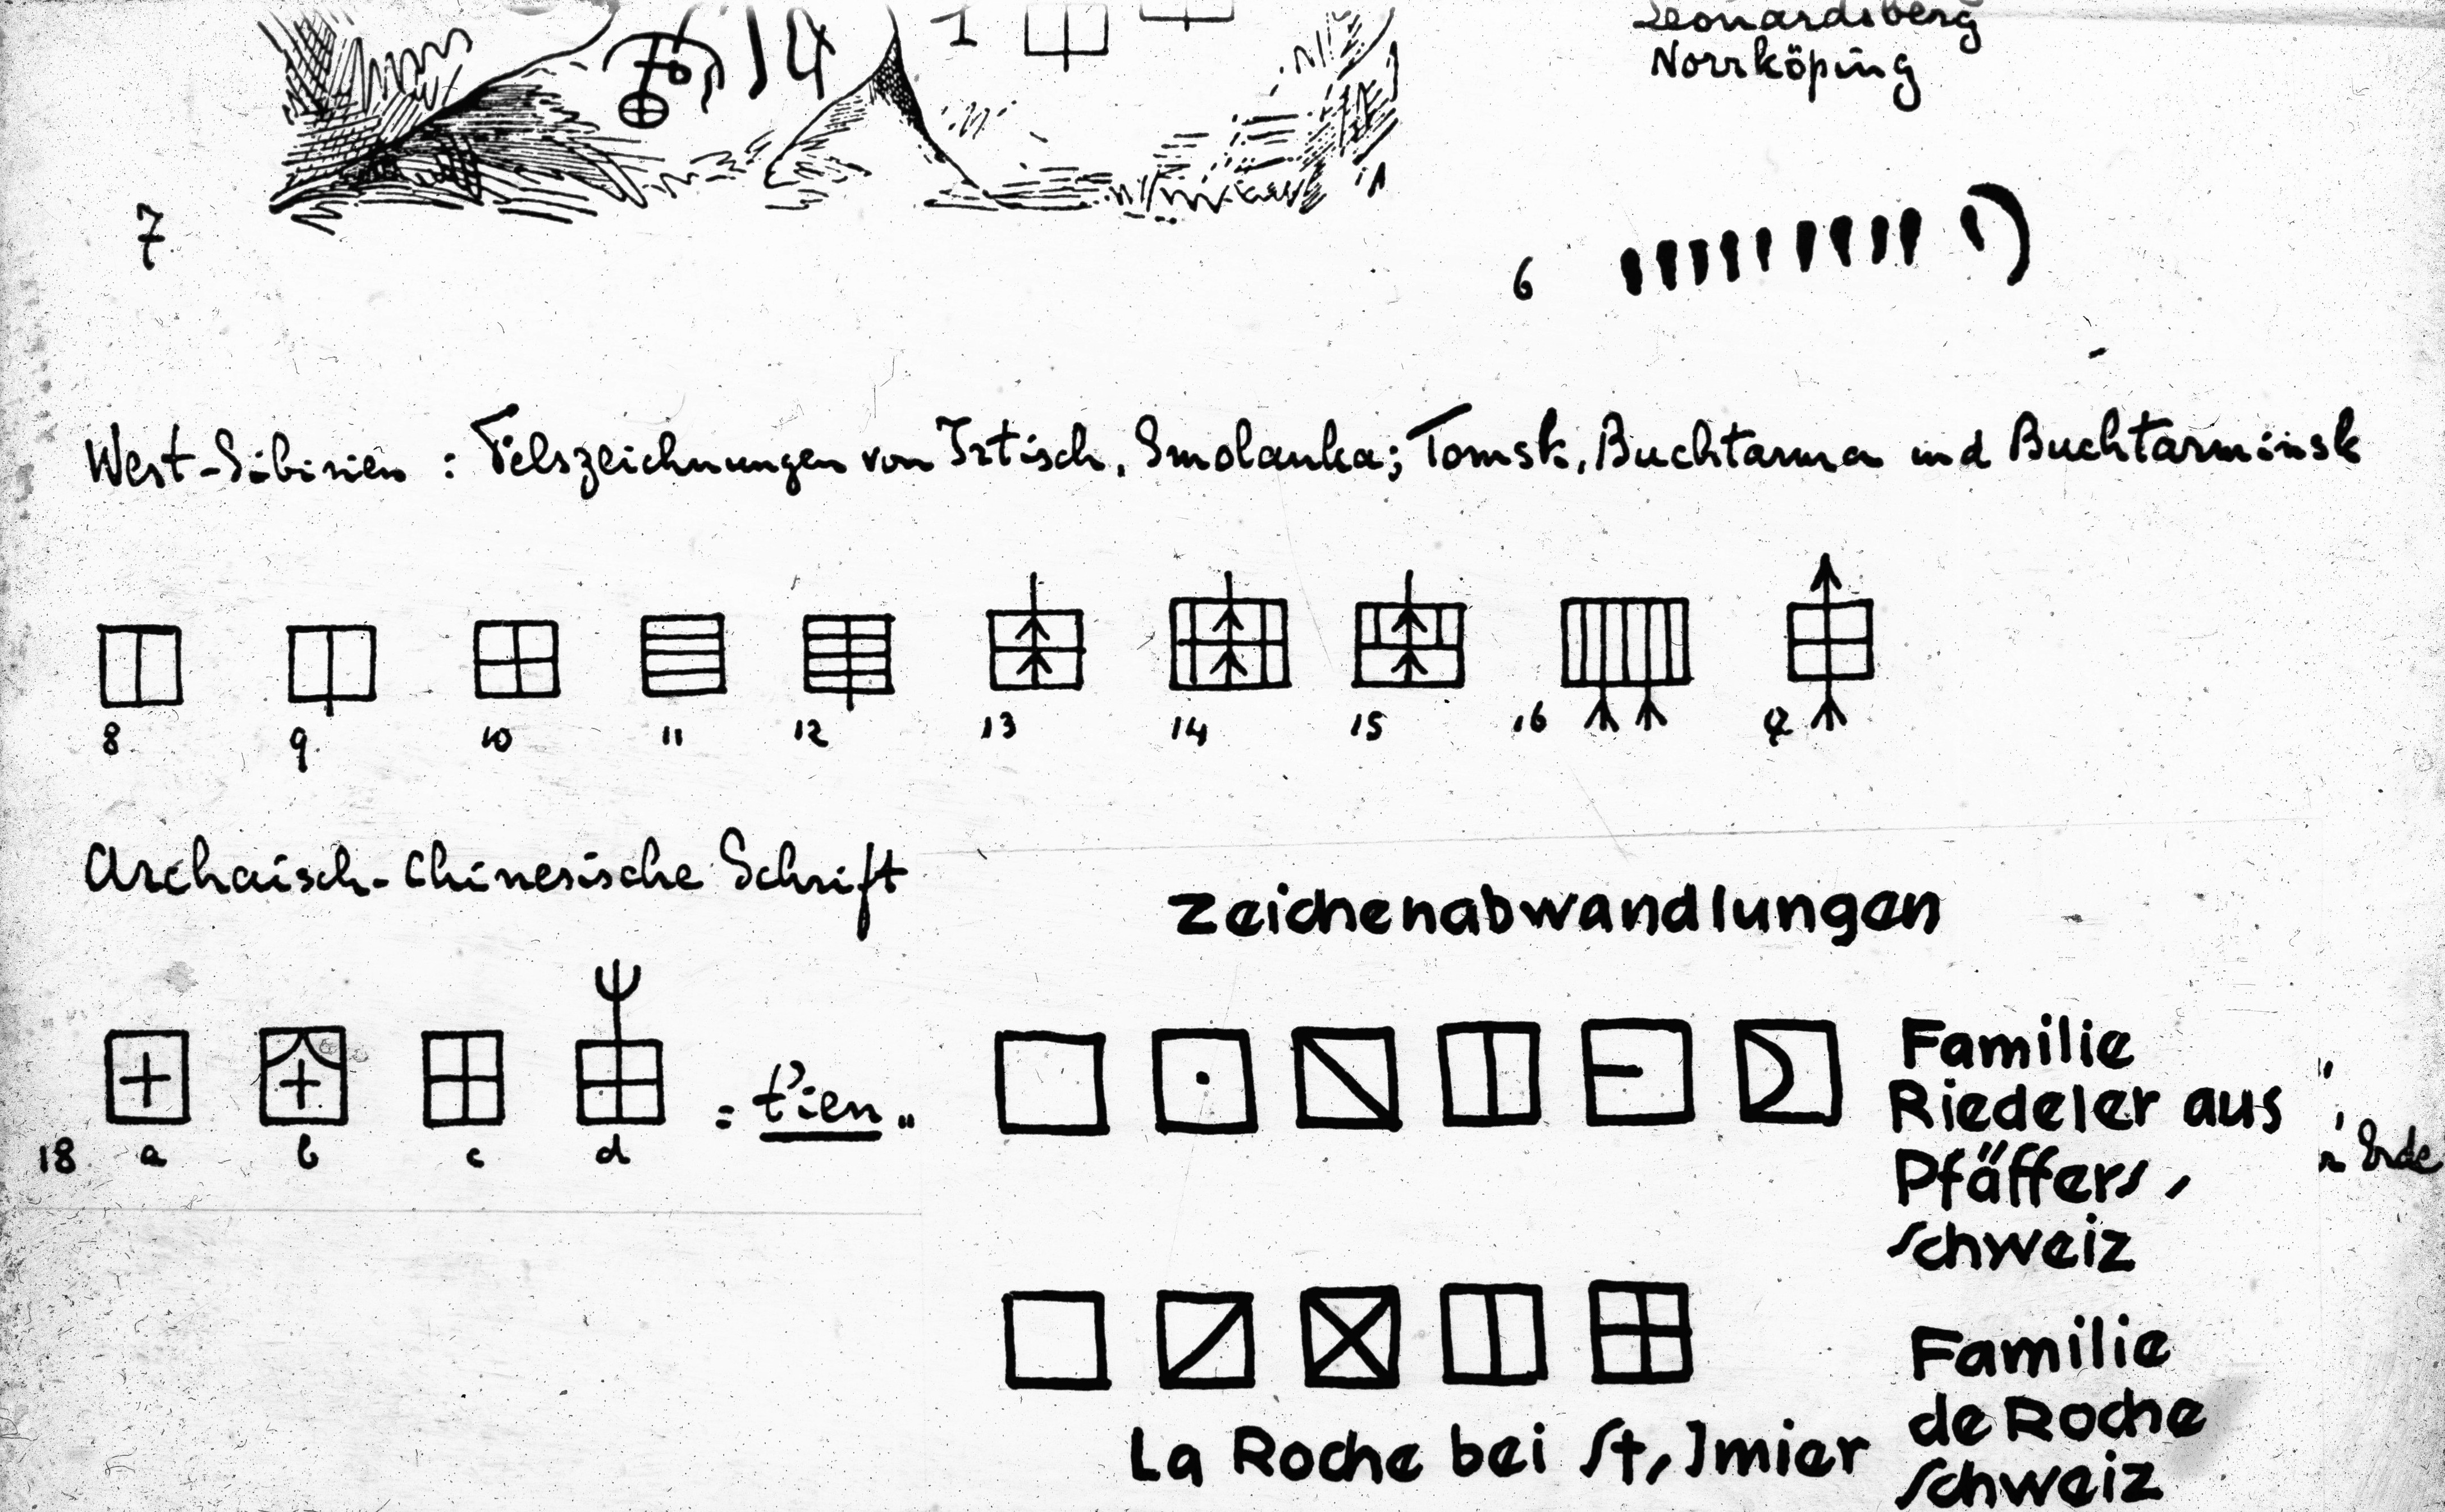 Leonardsberg
Norrköping
7
6
West-Sibirien : Felszeichnungen von Irtisch, Smolanka; Tomsk, Buchtarma und Buchtarminsk
8. 9. 10 11 12 13 14 15 16
Archaisch-Chinesische Schrift
Zeichenabwandlungen
18 a b c d = tien"
Familie
Riedeler aus
Pfäffers,
Schweiz
Erde
Familie
de Roche
Schweiz
La Roche bei St, Imier